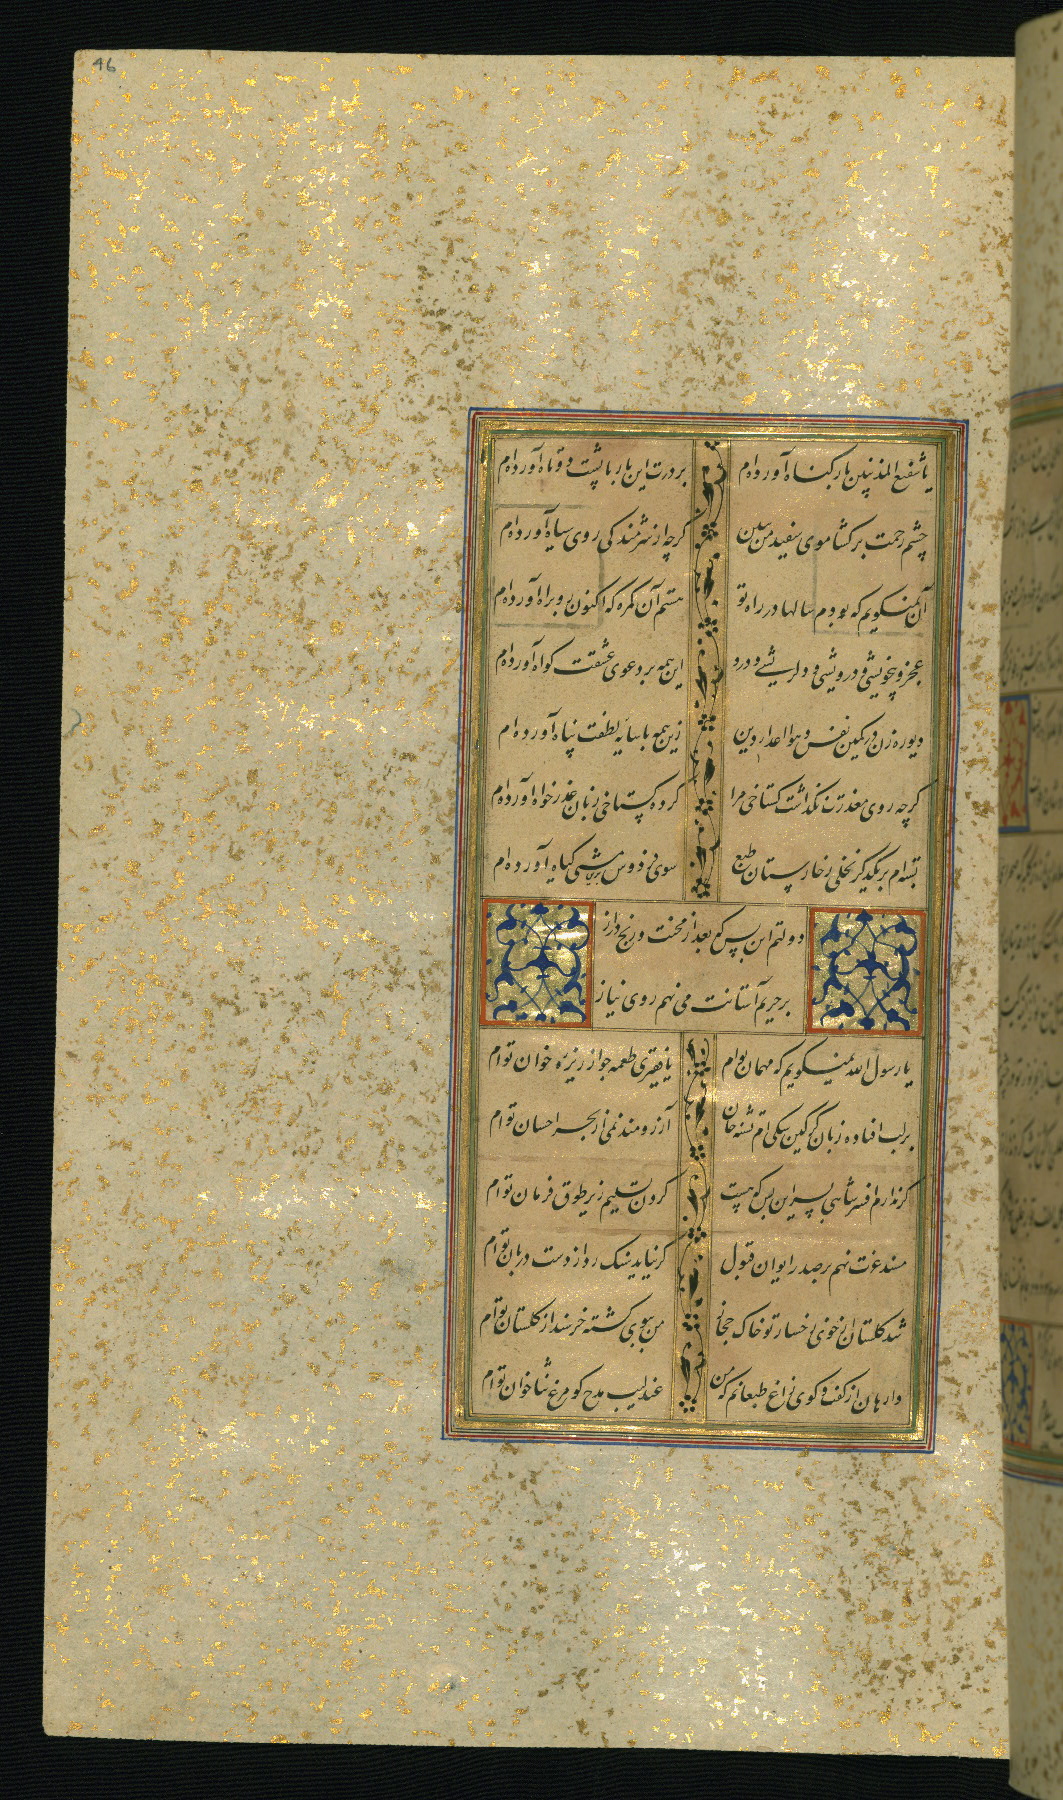 46
یا شفیع المذنبین بار گناه آورده‌ام بر درت این بار با پشت دوتاه آورده‌ام
چشم رحمت بر گشا موی سفید من ببین گرچه از شرمندگی روی سیاه آورده‌ام
آن نمیگویم که بودم سالها در راه تو هستم آن گمره که اکنون رو براه آورده‌ام
عجز و بیخویشی و درویشی و دلریشی و درد این همه بر دعوی عشقت گواه آورده‌ام
دیو ره زن در کمین نفس و هوا اعدای دین زین همه با سایه لطفت پناه آورده‌ام
گرچه روی معذرت نگذاشت گستاخی مرا کرده گستاخی زبان عذرخواه آورده‌ام
بسته‌ام بر یکدیگر نخلی ز خارستان طبع سوی فردوس برین مشتی گیاه آورده‌ام
دولتم این بس که بعد از محنت و رنج دراز
بر حریم آستانت می نهم روی نیاز
یا رسول الله نمیگویم که مهمان توام یا فقیری طعمه جو از ریزه خوان توام
بر لب افتاده زبان گرگین سگی‌ام تشنه جان آرزومند نمی از بحر احسان توام
گر ندارم افسر شاهی بسر این بس که هست گردن تسلیم زیر طوق فرمان توام
مسند عزت نهم بر صدر ایوان قبول گر نیاید سنگ رد از دست دربان توام
شد گلستان از خوی رخسار تو خاک حجاز من ببوی گشته خرسند از گلستان توام
وا رهان از گفت و گوی زاغ طبعانم که من عندلیب مدح گو مرغ ثناخوان توام